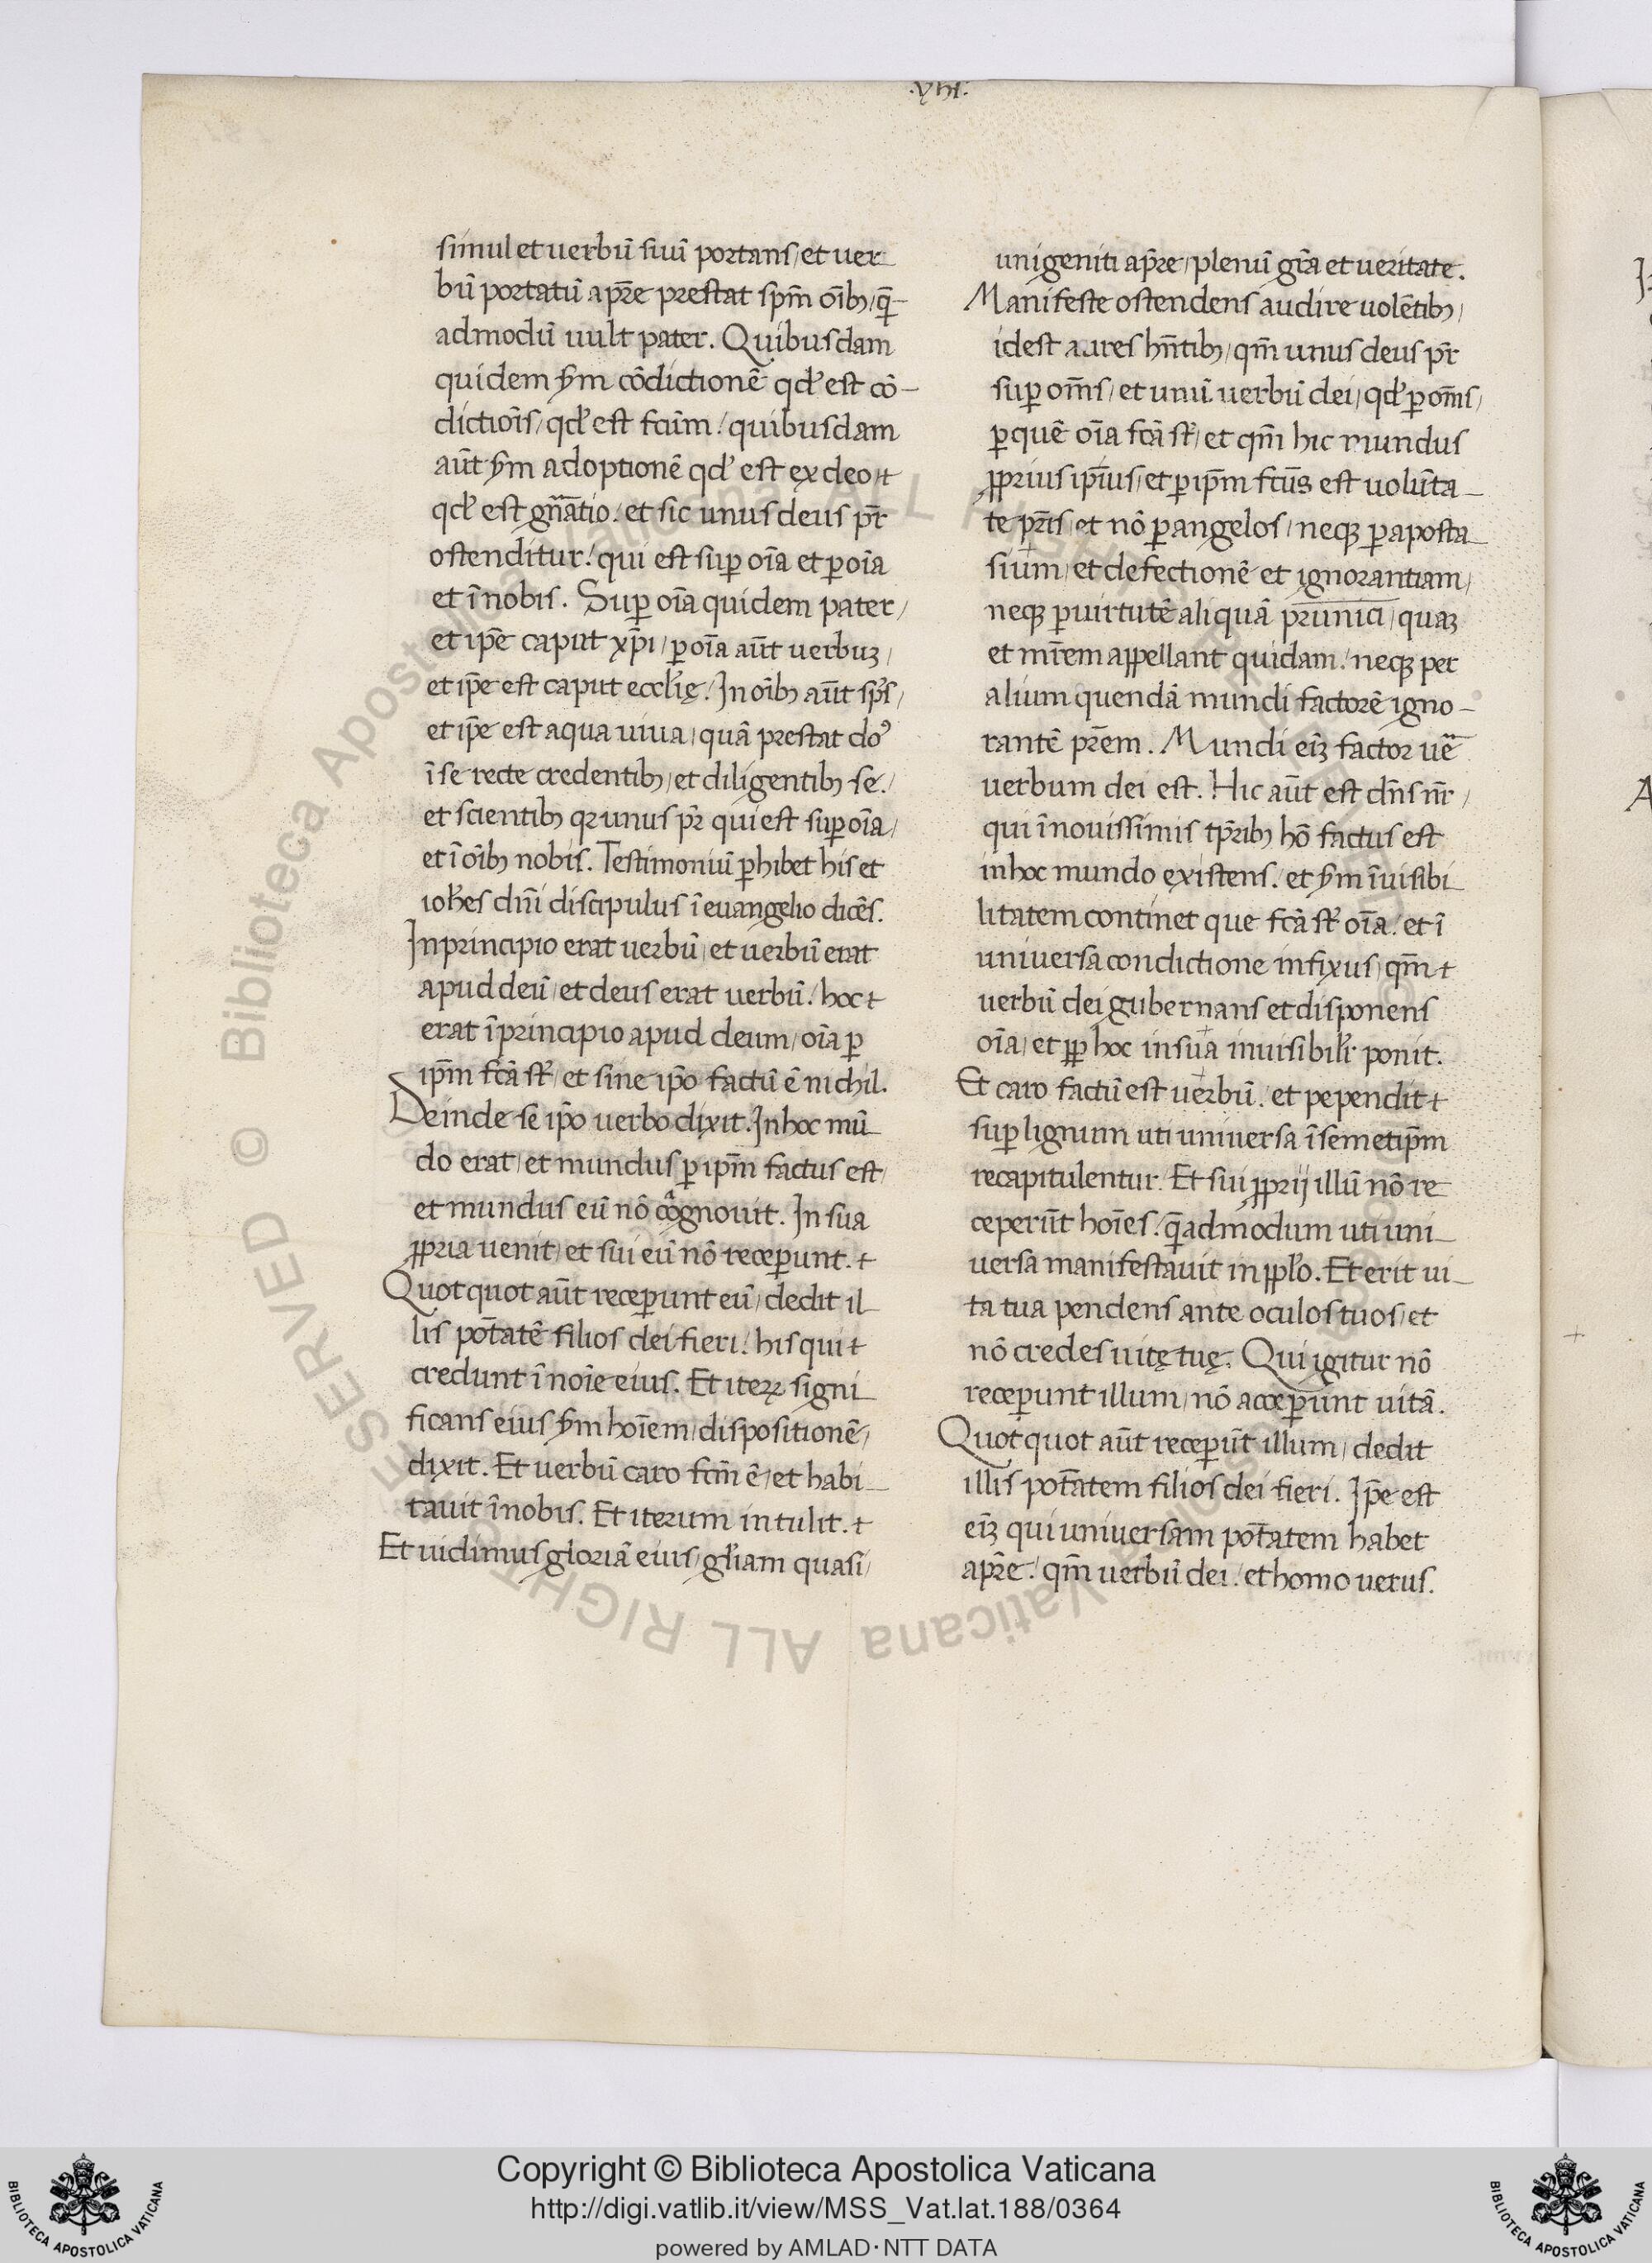 .xviii.
simul et uerbū suū portans/ et uer
bū portatū a pr̄e prestat spm̄ oībꝫ/ q̄
admodū uult pater. Quibusdam
quidem ẜm cōdictionē qđ est cō
dictiōis/ qđ est fctm̄/ quibusdam
aūt ẜm adoptionē qđ est ex deo
qđ est gn̄atio/ et sic unus deus pr̄
ostenditur/ qui est suꝑ oīa et ꝑ oīa
et ī nobis. Suꝑ oīa quidem pater/
et ip̄e caput xp̄i/ ꝑ oīa aūt uerbuꝫ/
et ip̄e est caput eccl̄ię/ In oībꝫ aūt sp̄s/
et ip̄e est aqua uiua/ quā prestat do᷒
ī se recte credentibꝫ/ et diligentibꝫ se/
et scientibꝫ qꝛ unus pr̄ qui est suꝑ oīa/
et ī oībꝫ nobis. Testimoniū ꝑhibet his et
ioh̄es dn̄i discipulus ī euangelio dicēs.
In principio erat uerbū/ et uerbū erat
apud deū/ et deus erat uerbū/ hoc
erat ī principio apud deum/ oīa ꝑ
ipm̄ fcā st̄/ et sine ip̄o factū ē nichil.
Deinde se ip̄o uerbo dixit. In hoc mū
do erat/ et mundus ꝑ ipm̄ factus est/
et mundus eū nō cognouit. In sua
ꝓpria uenit/ et sui eū nō receꝑunt.
Quotquot aūt receꝑunt eū/ dedit il
lis potātē filios dei fieri/ his qui
credunt ī noīe eius. Et iteꝝ signi
ficans eius ẜm hoīem/ dispositionē/
dixit. Et uerbū caro fctm̄ ē/ et habi
tauit ī nobis. Et iterum intulit.
Et uidimus gloriā eius/ gl̄iam quasi/
unigeniti a pr̄e/ plenū gr̄a et ueritate.
Manifeste ostendens audire uolētibꝫ/
idest aures hn̄tibꝫ/ qm̄ unus deus pr̄
suꝑ om̄s/ et unū uerbū dei/ qđ ꝑ om̄s/
ꝑ quē oīa fcā st̄/ et qm̄ hic mundus
ꝓprius ipīus/ et ꝑ ipm̄ fctūs est uolūta
te pr̄is/ et nō ꝑ angelos/ neqꝫ ꝑ aposta
sium/ et defectionē et ignorantiam/
neqꝫ ꝑ uirtutē aliquā prunici/ quaꝫ
et mr̄em appellant quidam/ neqꝫ per
alium quendā mundi factorē igno
rantē pr̄em. Mundi eīꝫ factor uē
uerbum dei est. Hic aūt est dn̄s nr̄/
qui ī nouissimis tp̄ribꝫ hō factus est
in hoc mundo existens/ et ẜm īuisibi
litatem continet que fcā st̄ oīa/ et ī
uniuersa condictione infixus/ qm̄
uerbū dei gubernans et disponens
oīa/ et ꝓp hoc in sua inuisibilr̄ ponit.
Et caro factū est uerbū/ et pependit
suꝑ lignum uti uniuersa ī semetipm̄
recapitulentur. Et sui ꝓprij illū nō re
ceperūt hoīes/ q̄admodum uti uni
uersa manifestauit in ppl̄o. Et erit ui
ta tua pendens ante oculos tuos/ et
nō credes uitę tuę. Qui igitur nō
receꝑunt illum/ nō acceꝑunt uitā.
Quotquot aūt receꝑūt illum/ dedit
illis potātem filios dei fieri. Ip̄e est
eīꝫ qui uniuersam potātem habet
a pr̄e/ qm̄ uerbū dei/ et homo uerus.
© Biblioteca Apostolica Vaticana ALL RIGHTS RESERVED
Copyright © Biblioteca Apostolica Vaticana
http://digi.vatlib.it/view/MSS_Vat.lat.188/0364
powered by AMLAD·NTT DATA
BIBLIOTECA APOSTOLICA VATICANA
BIBLIOTECA APOSTOLICA VATICANA